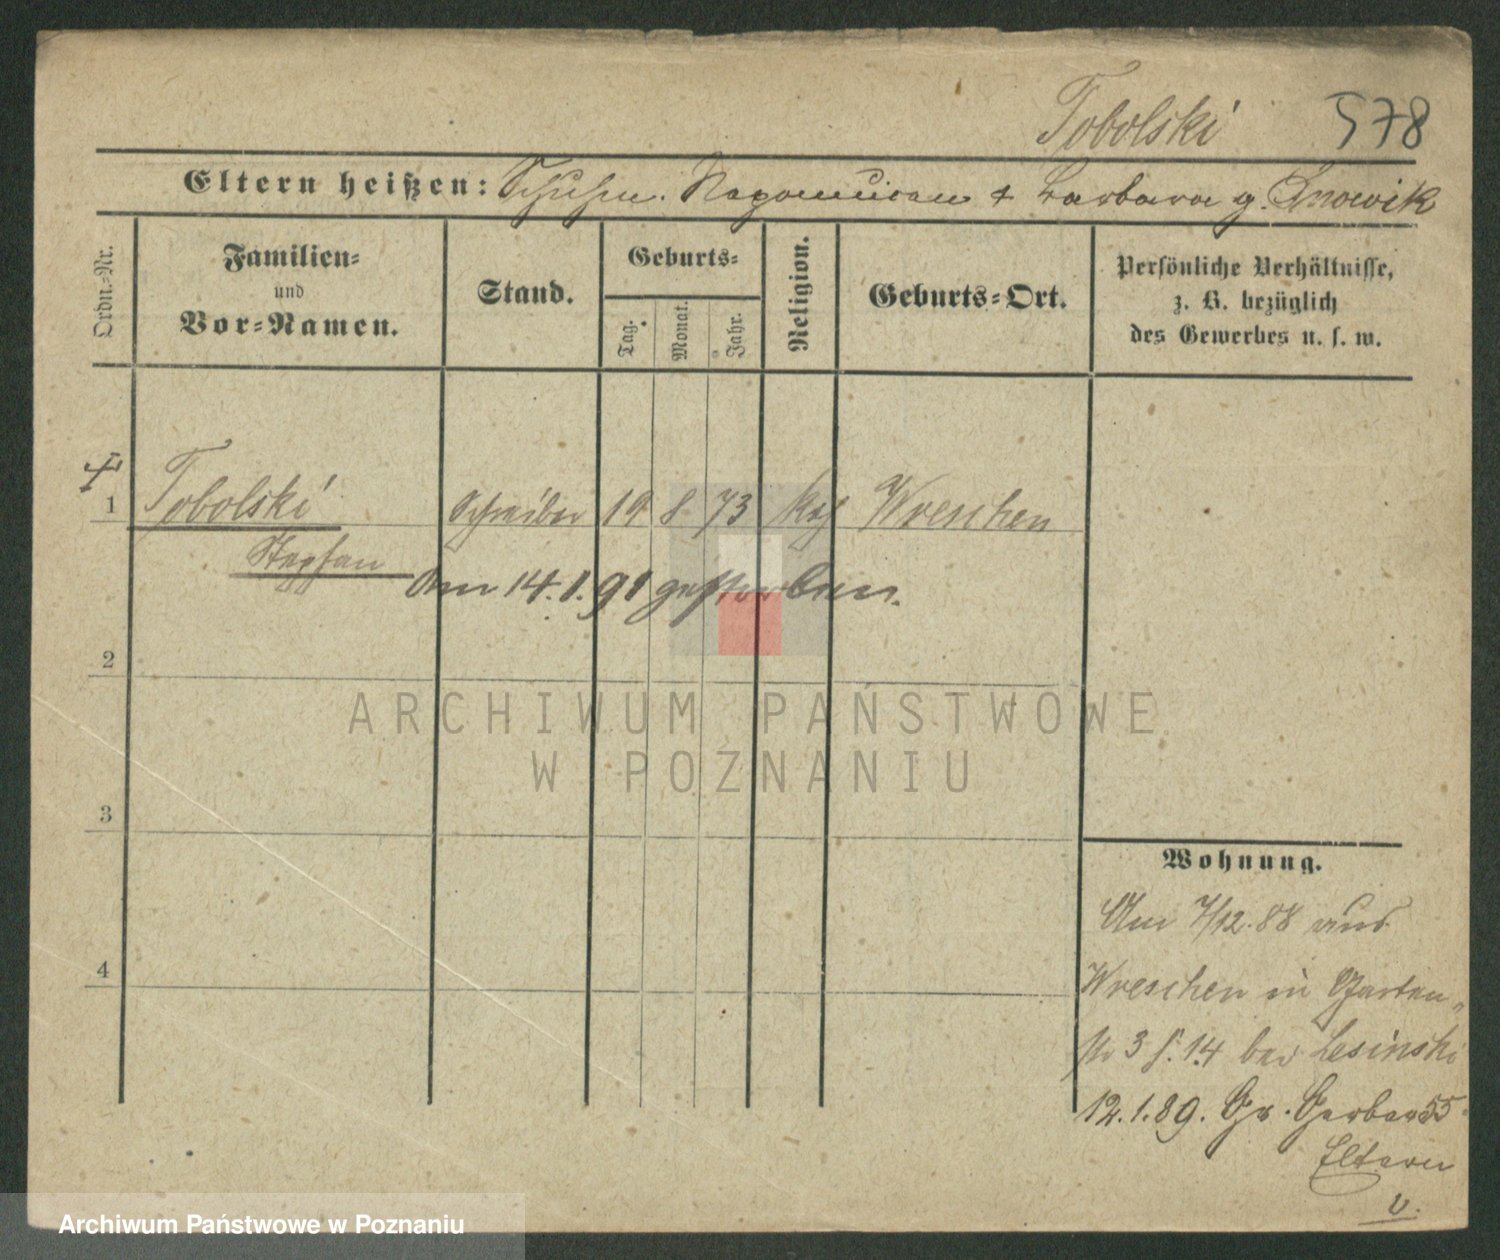 Tobolski 578
Eltern heißen: Schuhm. Nepomucen & Barbara g. Snowik
Ordn.-Nr.
Familien-
und
Vor-Namen.
Stand.
Geburts-
Tag.
Monat.
Jahr.
Religion.
Geburts-Ort.
Persönliche Verhältnisse,
z. B. bezüglich
des Gewerbes u. s. w.
1 Tobolski Schreiber 19 8 73 kath Wreschen
Stephan
Am 14.1.91 gestorben.
2
3
4
Wohnung.
Am 7/12.88 aus
Wreschen in Garten-
str 3 14 bei Lesinski
12.1.89. Gr. Gerber 55
Eltern
v.
ARCHIWUM PAŃSTWOWE
W POZNANIU
Archiwum Państwowe w Poznaniu